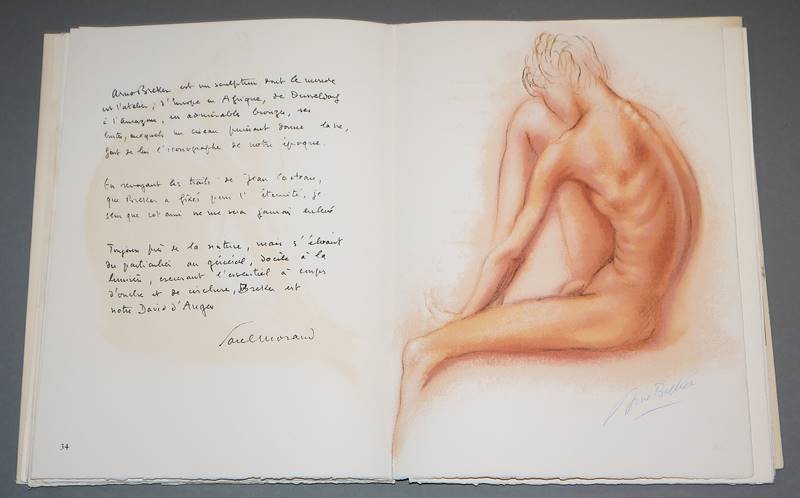 Arno Breker est un sculpteur dont le monde
est l'atelier; d'Europe en Afrique, de Dusseldorf
à l'Amazone, ses admirables bronzes, ses
bustes, auxquels un ciseau puissant donne la vie,
font de lui l'iconographe de notre époque.
En revoyant les traits de Jean Cocteau,
que Breker a fixés pour l'éternité, je
sens que cet ami ne me sera jamais enlevé
Toujours près de la nature, mais s'élevant
du particulier au général, docile à la
lumière, creusant l'essentiel à coups
d'ombre et de ciselure, Breker est
notre David d'Angers
Paul Morand
34
Arno Breker